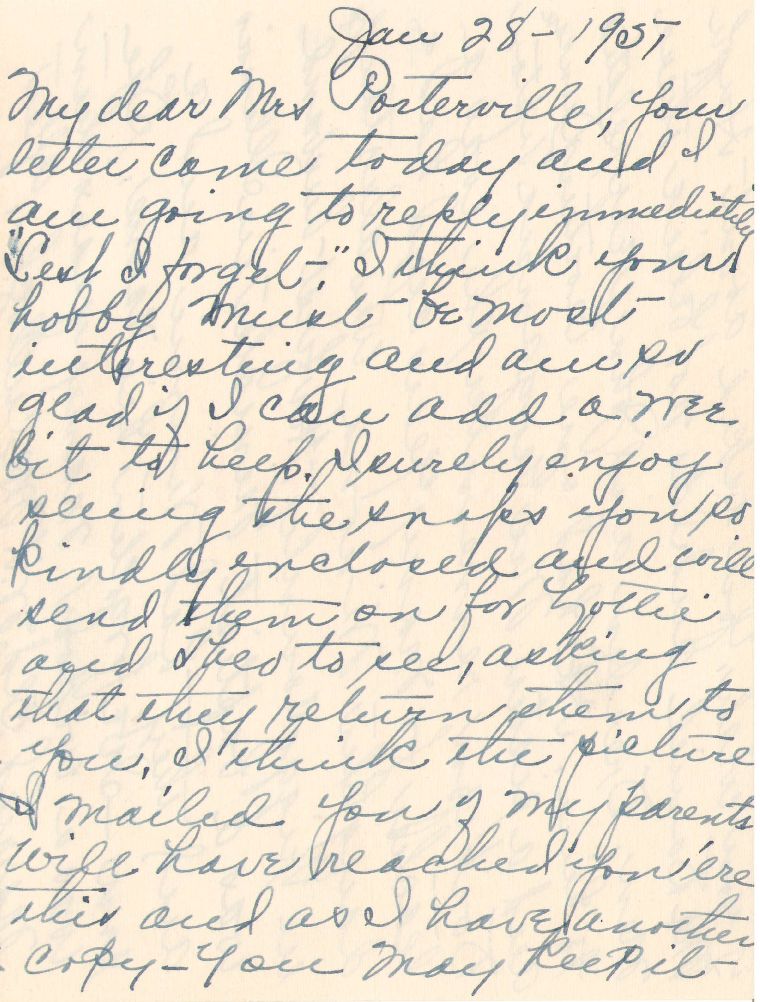 Jan 28 - 1951
My dear Mrs Porterville, your
letter came today and I
am going to reply immediately
"Lest I forget-". I think your
hobby must be most
interesting and am so
glad if I can add a wee
bit to help. I surely enjoy
seeing the snaps you so
kindly enclosed and will
send them on for Lottie
and Theo to see, asking
that they return them to
you. I think the picture
I mailed you of my parents
will have reached you 'ere
this and as I have another
copy - you may keep it -